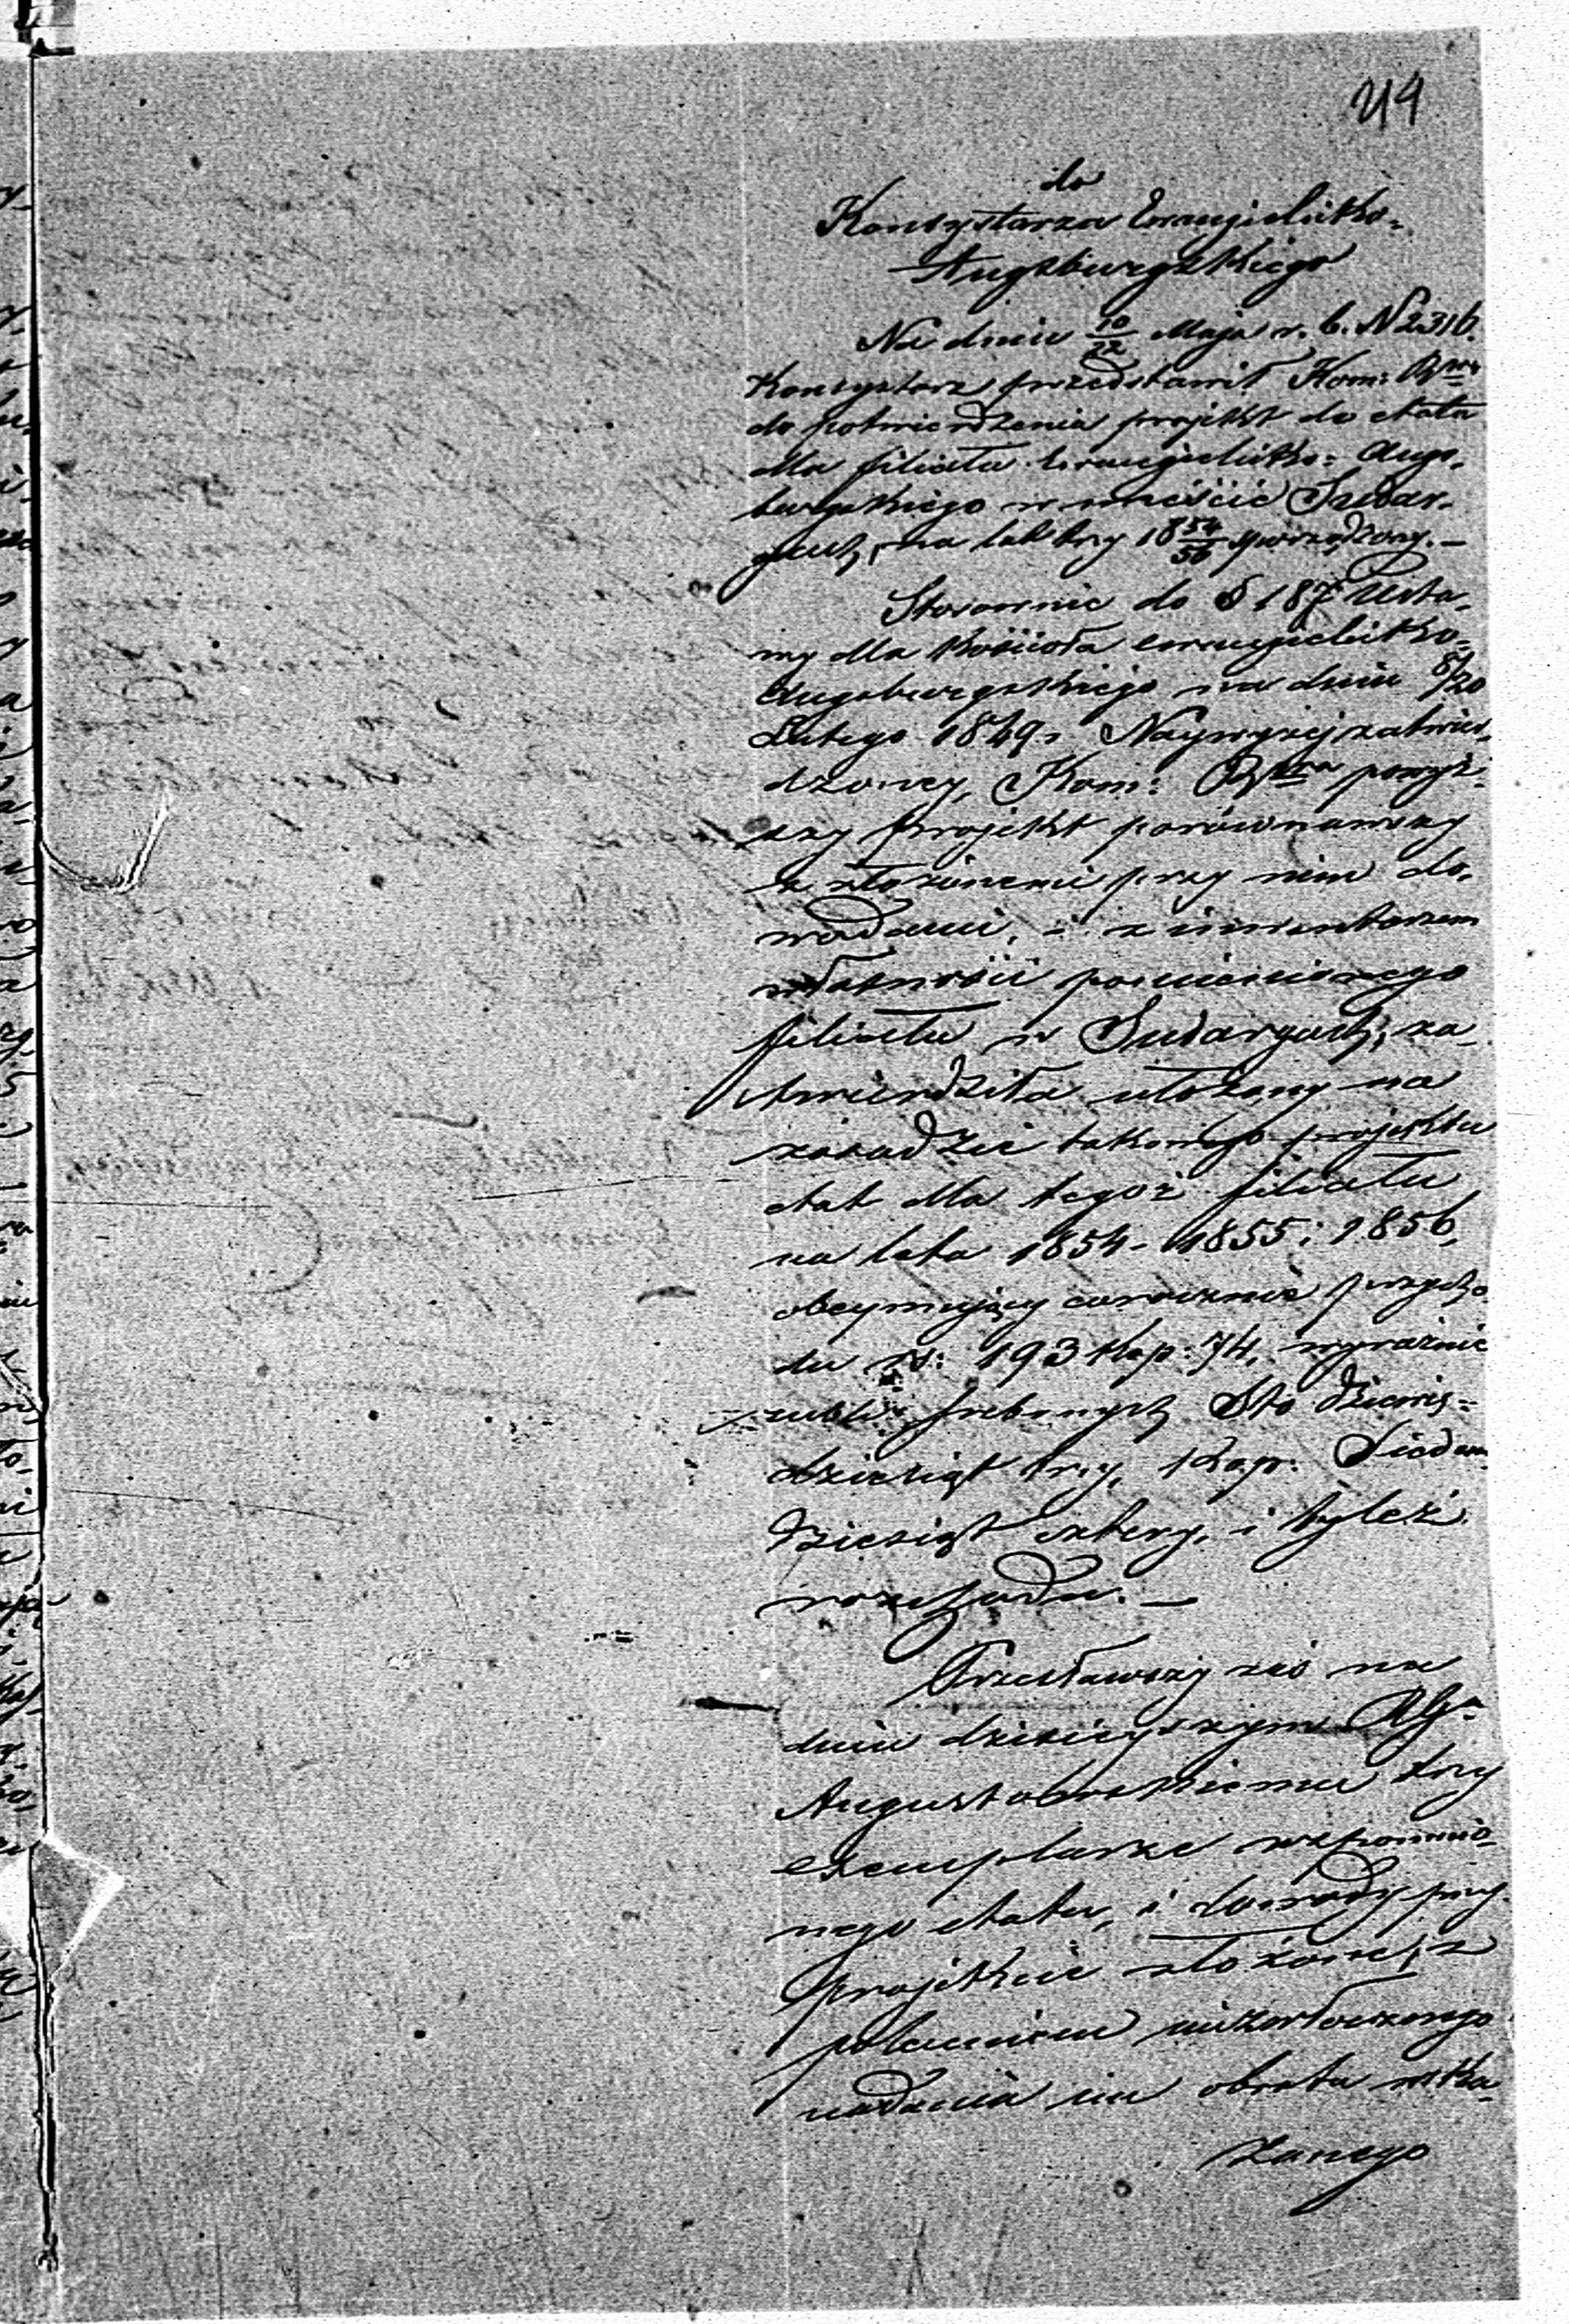 219
do
Konsystorza Ewangielicko-
Augsburgskiego
Na dniu 10/22 Maja r. b. N 2316.
Konsystorz przedstawił Kom: Rząd:
do potwierdzenia projekt do etatu
dla filiału Ewangielicko- Augs-
burgskiego w mieście Sudar-
gach, na lat trzy 1854/56 sporządzony.—
Stosownie do § 187 Usta-
wy dla Kościoła ewangielicko-
Augsburgskiego na dniu 8/20
Lutego 1849 r. Naywyżej zatwier-
dzoney, Kom: Rządowa powyż-
szy projekt porównawszy
z złożonemi przy nim do-
wodami, i z inwentarzem
własności pomienionego
filiału w Sudargach, za-
twierdziła ułożony na
zasadzie takowego projektu
etat dla tegoż filiału
na lata 1854- 1855 i 1856,
obeymujący corocznie przycho-
du rs: 193 kop: 74, wyraźnie
rubli srebrnych Sto dziewięć-
dziesiąt trzy, kop: Siedem-
dziesiąt cztery, i tyleż
rozchodu.—
Przesławszy zaś na
dniu dzisieyszym RGu
Augustowskiemu trzy
exemplarze wspomnio-
nego etatu, i dowody przy
projekcie złożone, z
poleceniem niezwłocznego
nadania im obrotu wska-
zanego